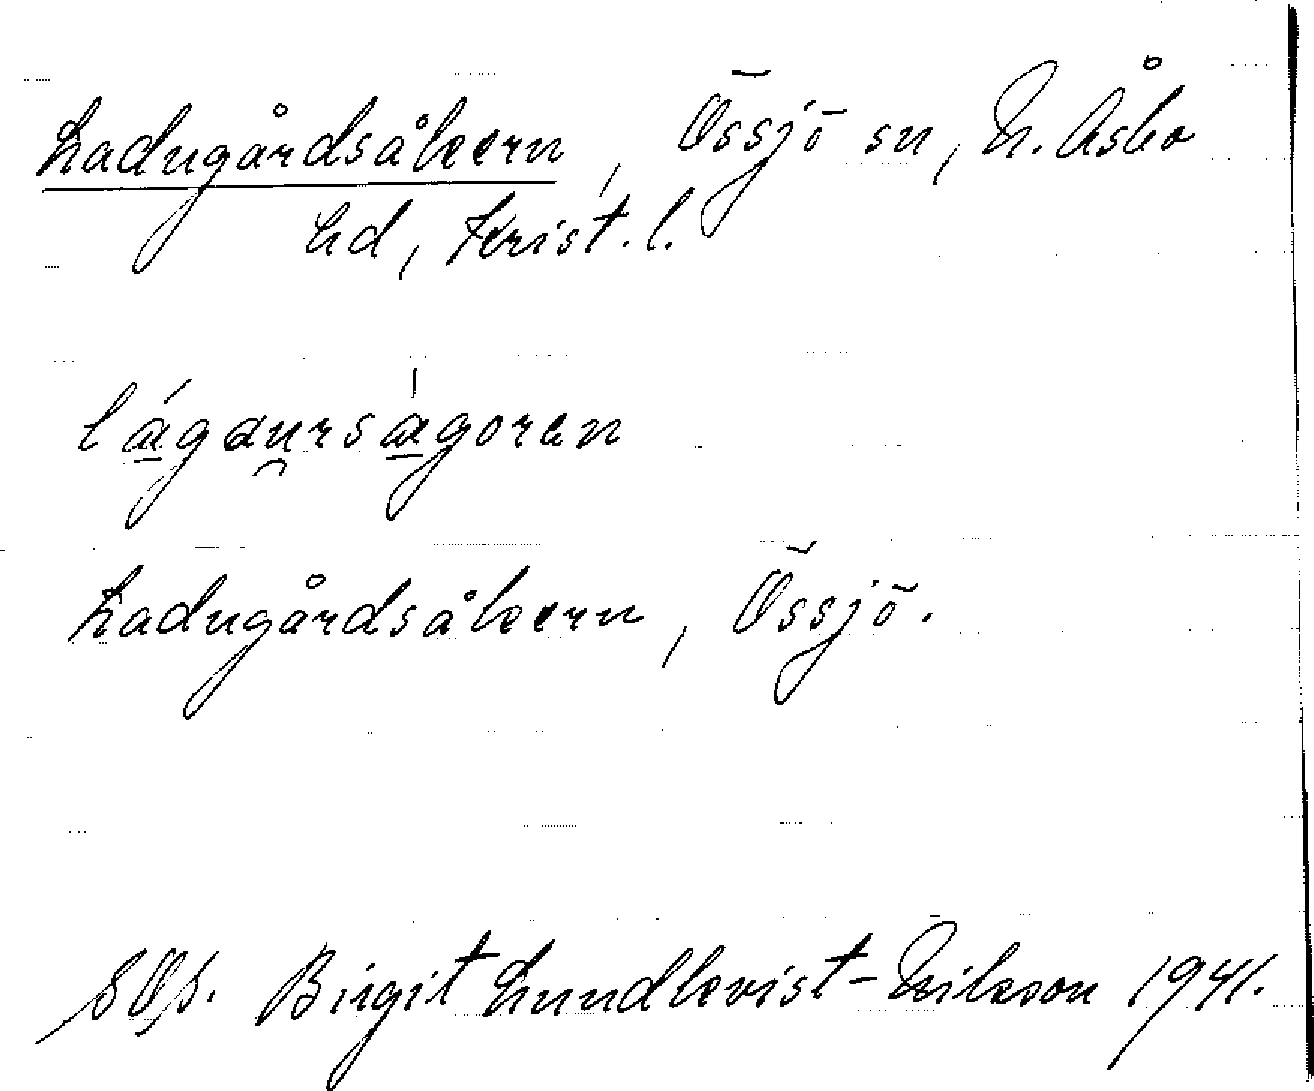 Ladugårdsåkern, Össjö sn, N. Åsbo
hd, Krist. l.
lágau̯rságoren
Ladugårdsåkern, Össjö.
Birgit Lundkvist-Nilsson 1941.